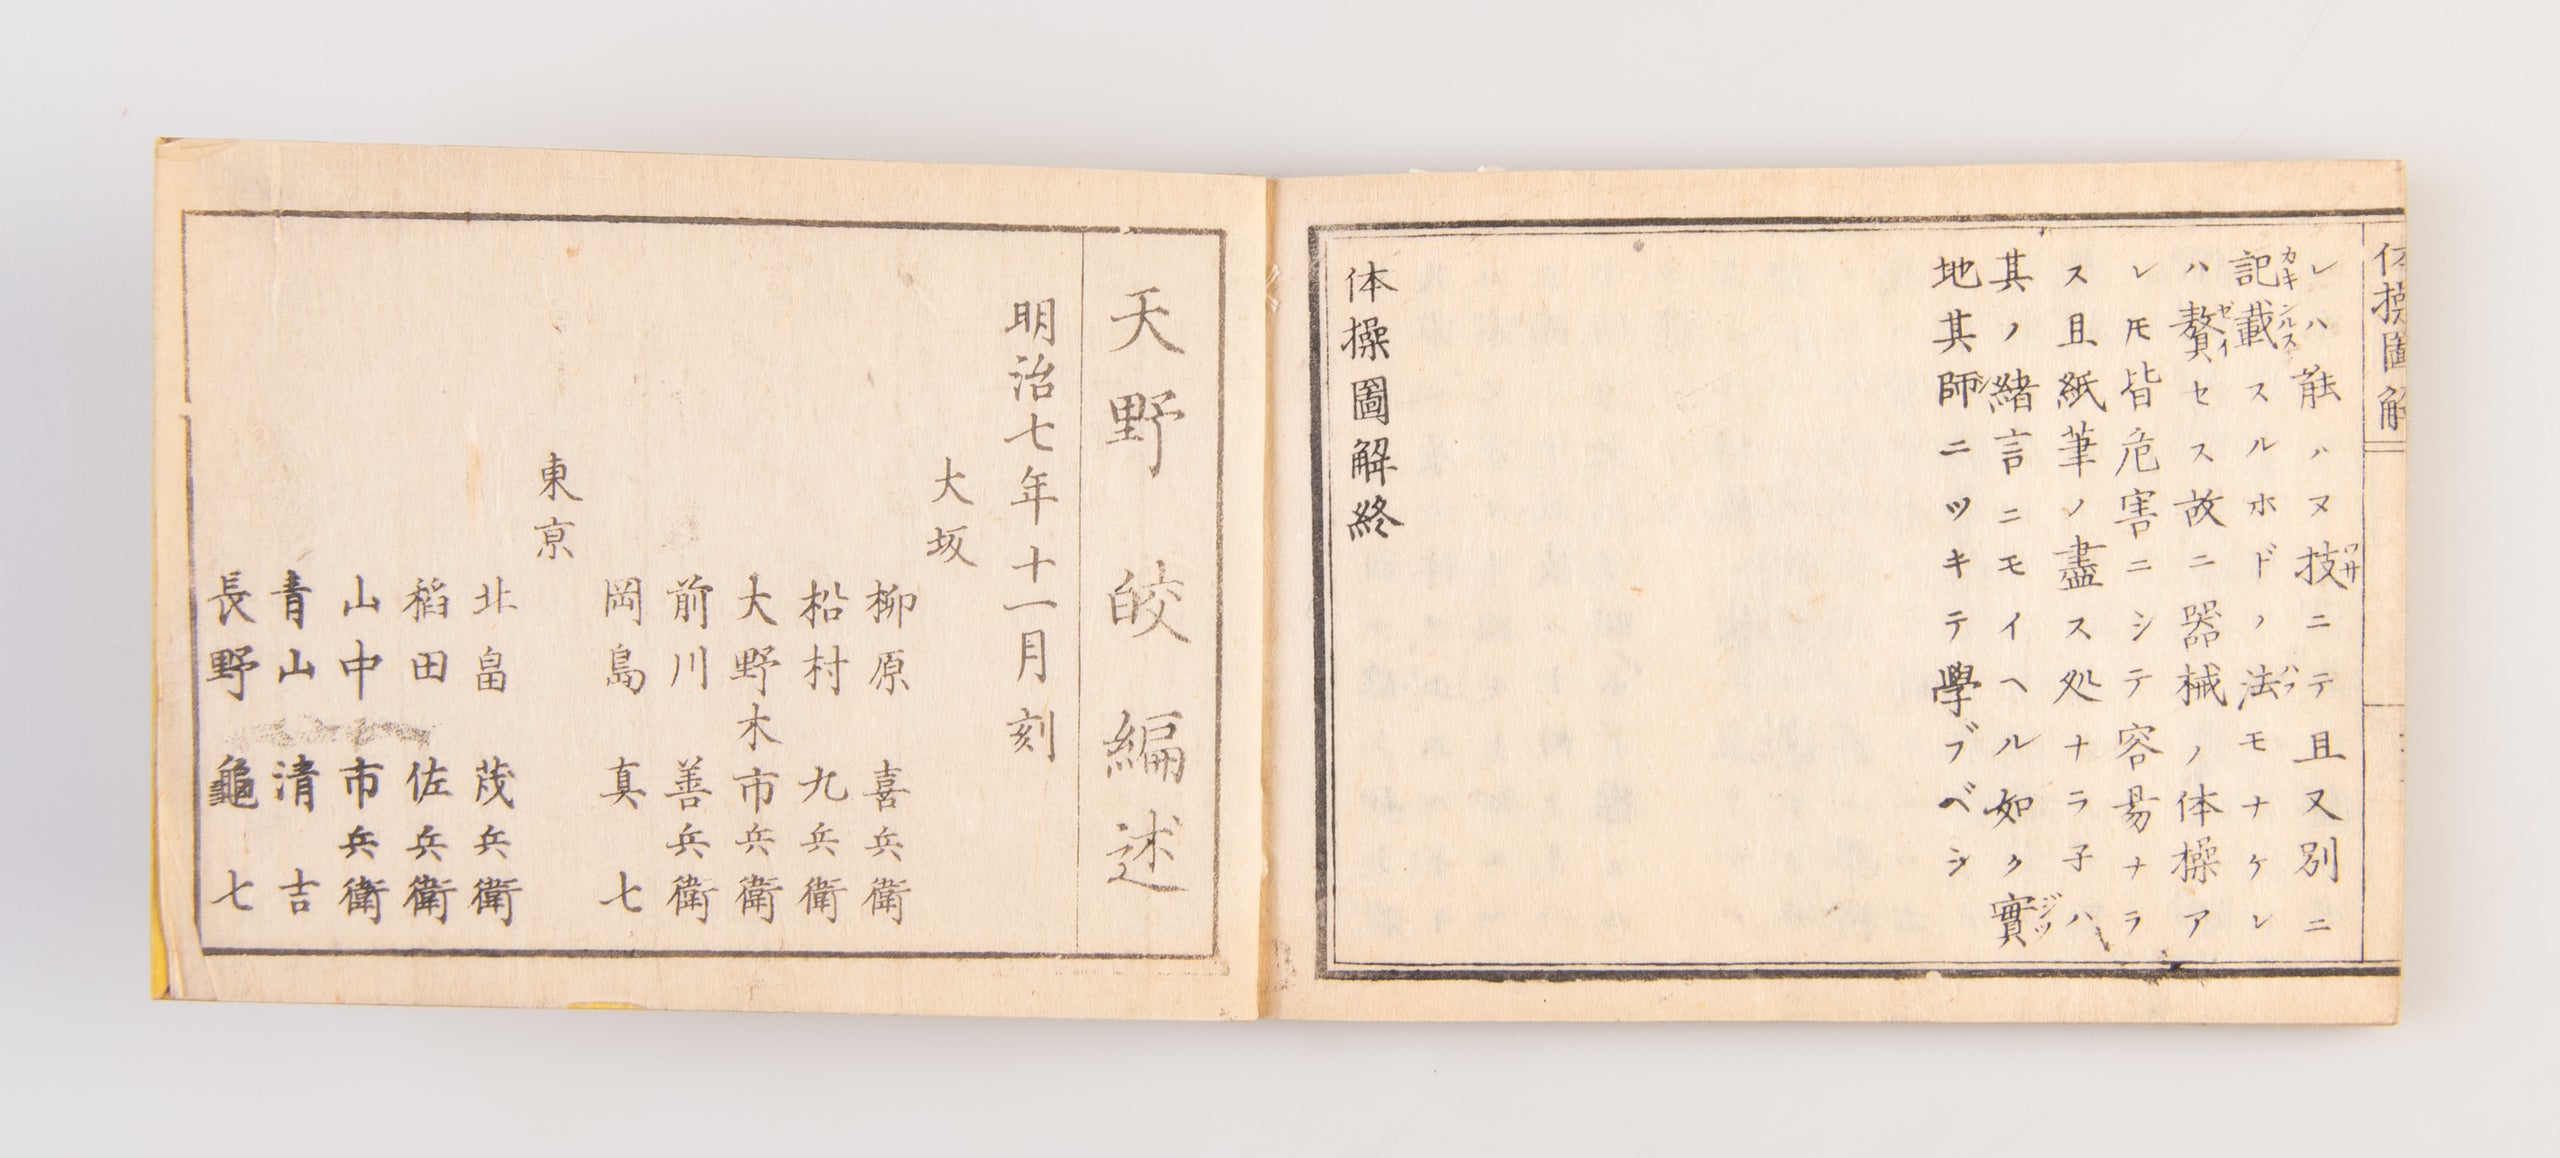 体操圖解
レハ能ハヌ技ワサニテ且又別ニ
記載カキシルススルホドノ法ハフモナケレ
ハ贅ゼイセス故ニ器械ノ体操ア
レ𪜈皆危害ニシテ容昜ナラ
ス且紙筆ノ盡ス処ナラ子ハ
其ノ緒言ニモイヘル如ク實ジツ
地其師シニツキテ學ブベシ
体操圖解終
天野皎編述
明治七年十一月刻
大坂
柳原喜兵衛
松村九兵衛
大野木市兵衛
前川善兵衛
岡島真七
東京
北畠茂兵衛
稻田佐兵衛
山中市兵衛
青山清吉
長野龜七